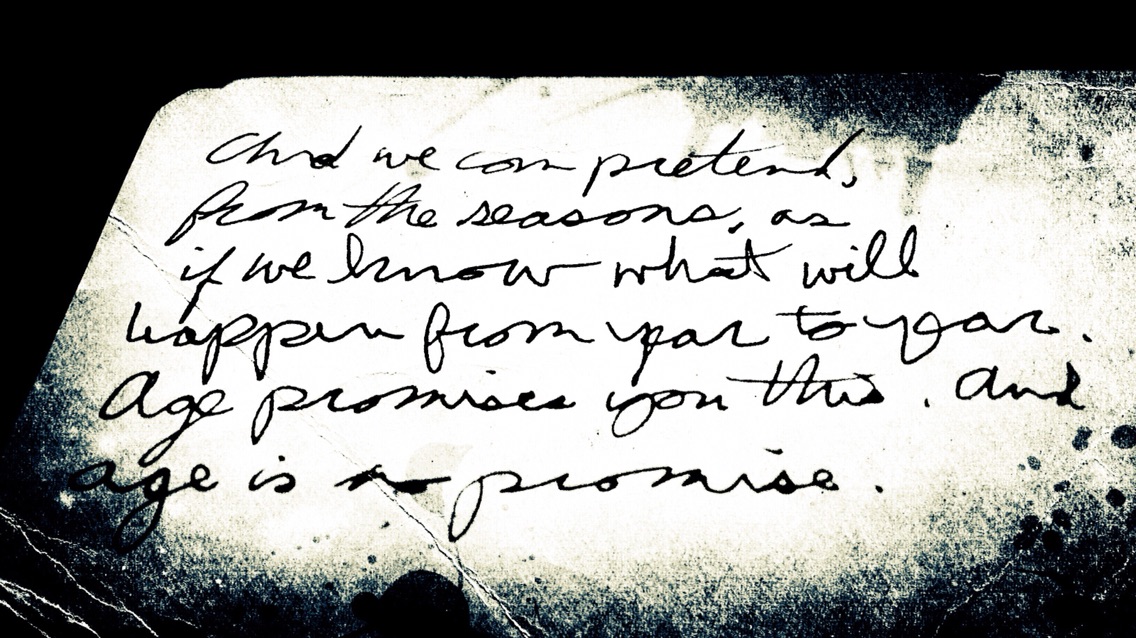 And we can pretend,
from the seasons, as
if we know what will
happen from year to year.
Age promises you this. And
age is no promise.